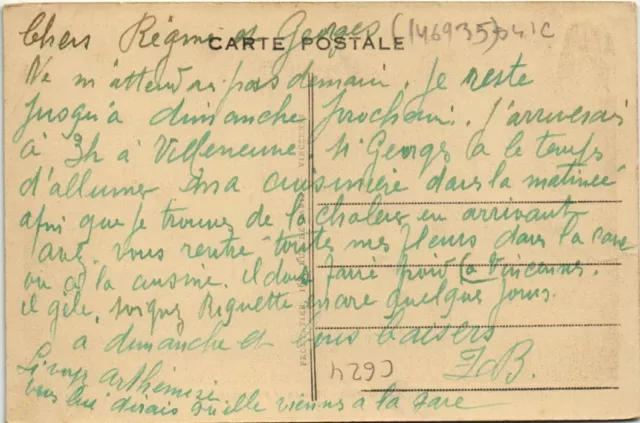 Chers Régine et Georges (146935) 94 1C
CARTE POSTALE
Ne m'attendez pas demain. Je reste
jusqu'à dimanche prochain. J'arriverai
à 3h à Villeneuve. Si Georges a le temps
d'allumer ma cuisinière dans la matinée
afin que je trouve de la chaleur en arrivant
avez vous rentré toutes mes fleurs dans la cave
ou à la cuisine. il doit faire froid (à Vincennes.
il gèle, soignez Riquette encore quelques jours.
a dimanche et bons baisers
J B.
C624
Si vous Arthémise
vous lui dirais qu'elle vienne à la gare